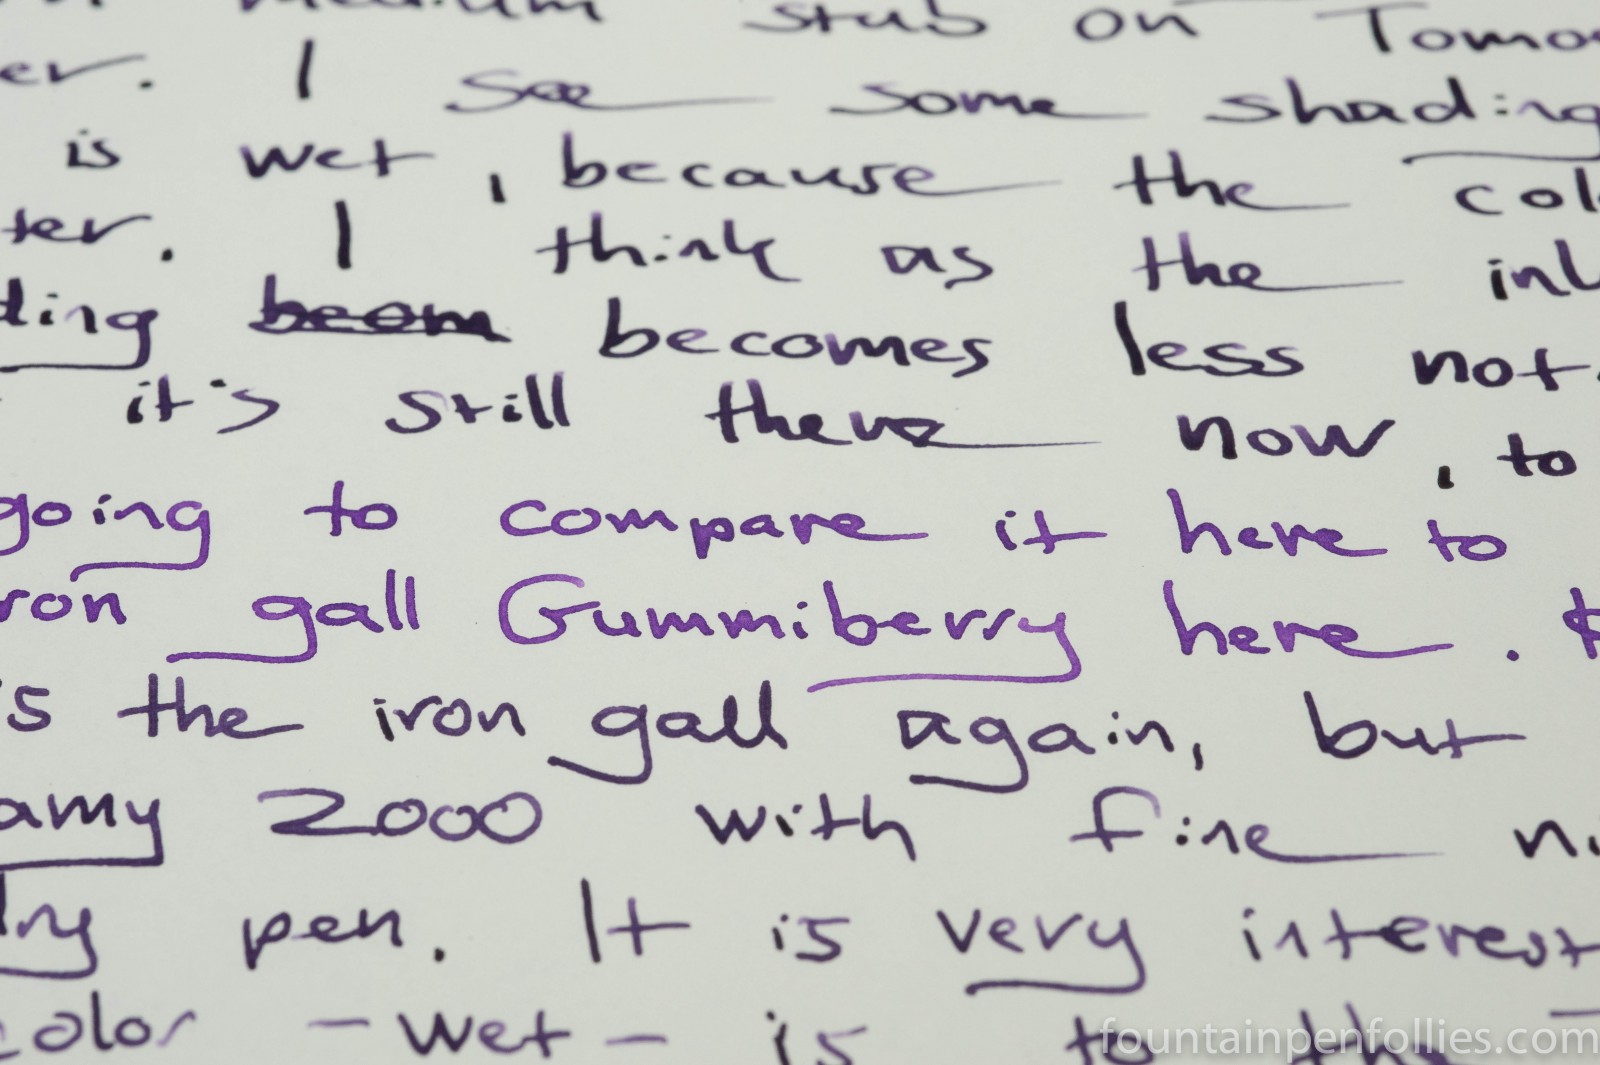 medium stub on Tomo
er. I see some shading
is wet, because the col
ter. I think as the ink
ding becom becomes less not
it's still there now, to
going to compare it here to
ron gall Gummiberry here.
's the iron gall again, but
amy 2000 with fine ni
dry pen. It is very interest
color - wet - is to th
fountainpenfollies.com